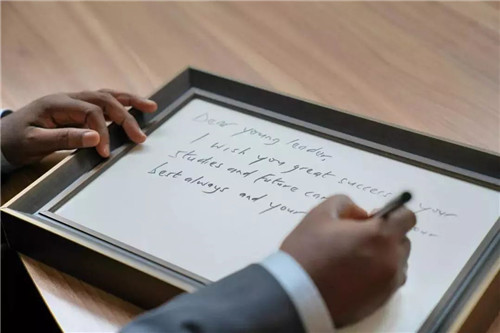 Dear young leader,
I wish you great success your
studies and future your
best always and your